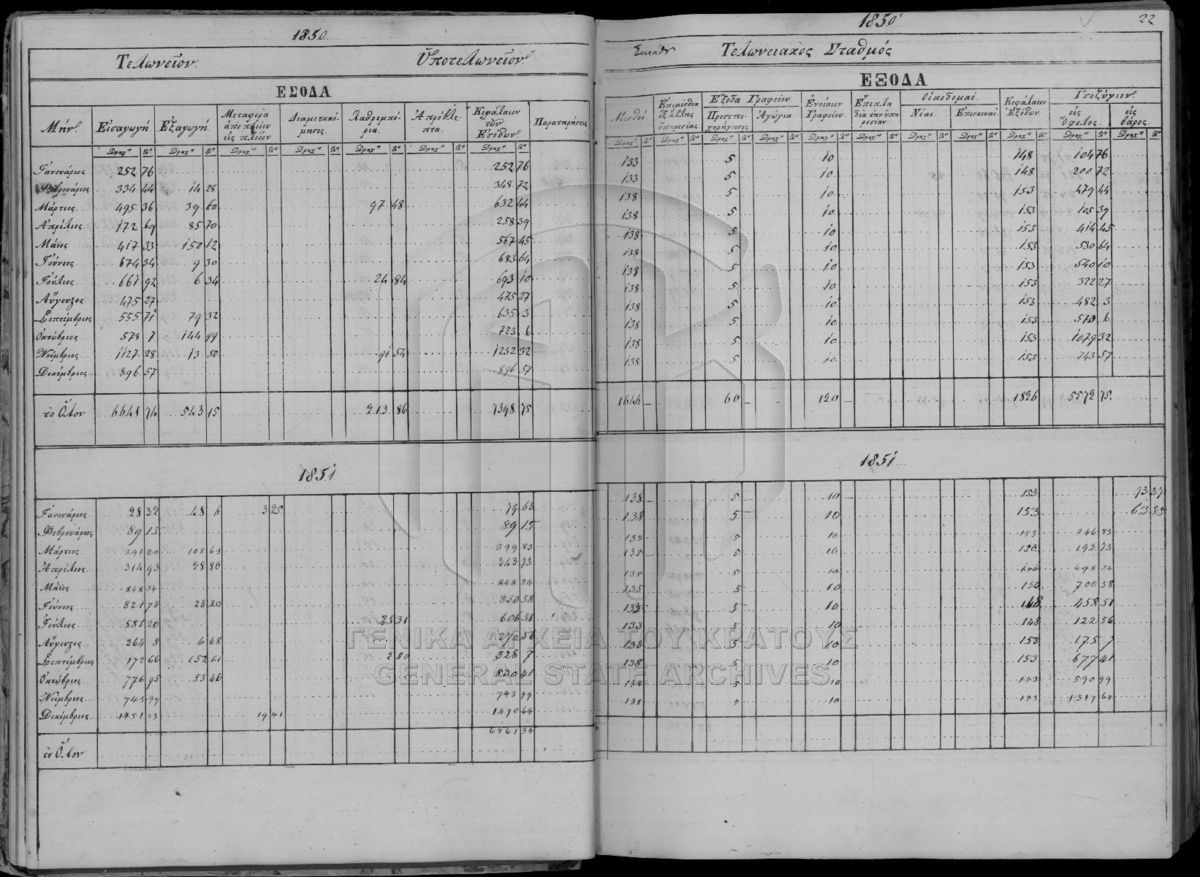 1850
Τελωνεῖον. Ὑποτελωνεῖον
ΕΣΟΔΑ
Μήν. Εἰσαγωγή Εξαγωγή Μεταφορὰ ἀπὸ πλοίου εἰς πλοῖον Διαμετακόμησις. Λαθρεμπόρια. Ἀπρόβλεπτα. Κεφάλαιον τῶν Ἐσόδων Παρατηρήσεις
Ἰανουάριος 252 76 252 76
Φεβρουάριος 334 44 14 28 348 72
Μάρτιος 495 36 39 60 97 48 632 44
Ἀπρίλιος 172 69 85 70 258 39
Μάϊος 417 33 150 12 567 45
Ἰούνιος 674 34 9 30 683 64
Ἰούλιος 661 92 6 34 24 84 693 10
Αὔγουστος 475 27 475 27
Σεπτέμβριος 555 71 79 32 635 3
Ὀκτώβριος 578 7 144 99 723 6
Νοέμβριος 1127 28 13 50 91 54 1232 32
Δεκέμβριος 896 57 896 57
τὸ Ὅλον 6641 74 543 15 213 86 7398 75
1851
Ἰανουάριος 28 32 48 6 3 25 79 63
Φεβρουάριος 89 15 89 15
Μάρτιος 291 20 108 63 399 83
Ἀπρίλιος 314 93 28 80 343 73
Μάϊος 848 34 848 34
Ἰούνιος 821 78 28 80 850 58
Ἰούλιος 581 20 25 31 606 51
Αὔγουστος 264 8 6 48 270 56
Σεπτέμβριος 172 66 152 61 2 80 328 7
Ὀκτώβριος 776 95 53 46 830 41
Νοέμβριος 743 99 743 99
Δεκέμβριος 1451 23 19 41 1470 64
τὸ Ὅλον 6861 34
1850 22
Τελωνειακὸς Σταθμός
ΕΞΟΔΑ
Μισθοὶ Ἔξοδα Γραφείου Προσεπιχορήγησις Ἀγώγια Ἐνοίκιον Γραφείου Ἔπιπλα διὰ τὴν ὑπηρεσίαν Οἰκοδομαί Νέαι. Ἐπισκευαί. Κεφάλαιον Ἐξόδων Ἰσοζύγιον εἰς ὄφελος. εἰς βάρος.
133 5 10 148 104 76
133 5 10 148 200 72
138 5 10 153 479 44
138 5 10 153 105 39
138 5 10 153 414 45
138 5 10 153 530 64
138 5 10 153 540 10
138 5 10 153 322 27
138 5 10 153 482 3
138 5 10 153 570 6
138 5 10 153 1079 32
138 5 10 153 743 57
1646 60 120 1826 5572 75
1851
138 5 10 153 73 37
138 5 10 153 63 85
138 5 10 153 246 83
135 5 10 150 193 73
135 5 10 150 698 34
135 5 10 150 700 58
133 5 10 148 458 51
133 5 10 148 122 56
138 5 10 153 175 7
138 5 10 153 677 41
138 5 10 153 590 99
138 5 10 153 1317 64
ΓΕΝΙΚΑ ΑΡΧΕΙΑ ΤΟΥ ΚΡΑΤΟΥΣ
GENERAL STATE ARCHIVES